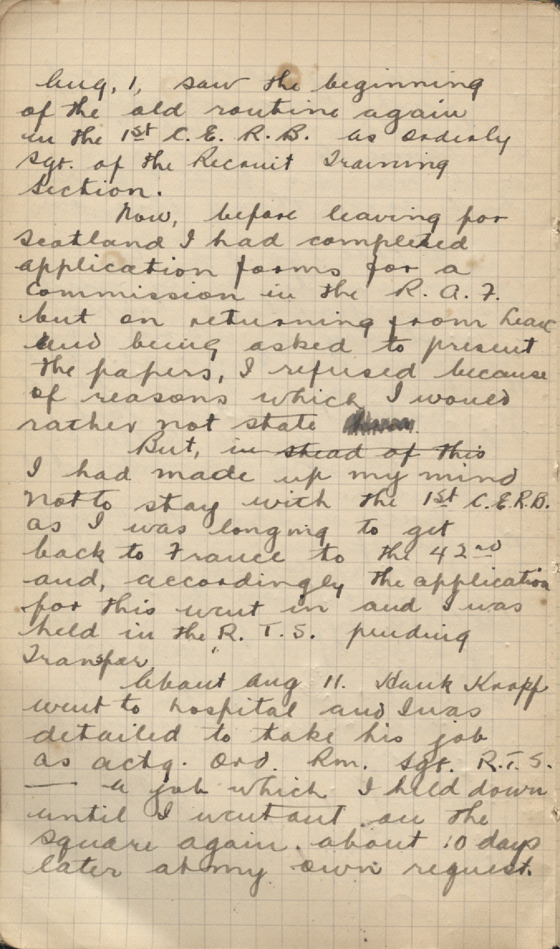 Aug. 1, saw the beginning
of the old routine again
in the 1st C. E. R. B. as orderly
Sgt. of the Recruit Training
Section.
Now, before leaving for
Scotland I had completed
application forms for a
commission in the R. A. F.
but on returning from leave
and being asked to present
the papers, I refused because
of reasons which I would
rather not state
But, in stead of this
I had made up my mind
not to stay with the 1st C.E.R.B.
as I was longing to get
back to France to the 42nd
and, accordingly the application
for this went in and I was
held in the R. T. S. pending
Transfer.
About Aug 11. Hank Knapp
went to hospital and I was
detailed to take his job
as actg. Ord. Rm. Sgt. R.T.S.
— a job which I held down
until I went out on the
square again about 10 days
later at my own request.